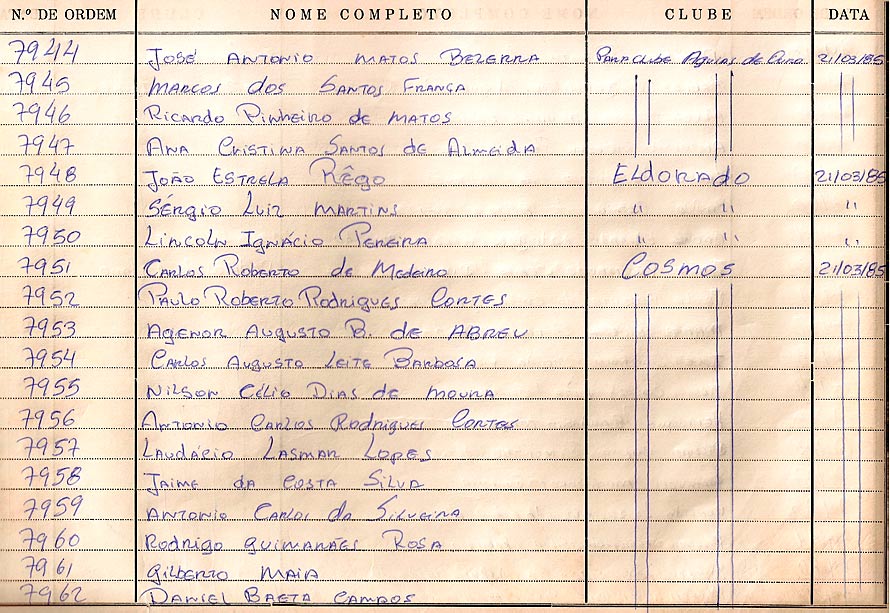 N.º DE ORDEM NOME COMPLETO CLUBE DATA
7944 José Antonio Matos Bezerra Paraclube Aguias de Ouro 21/03/85
7945 Marcos dos Santos França " "
7946 Ricardo Pinheiro de Matos
7947 Ana Cristina Santos de Almeida
7948 João Estrela Rêgo Eldorado 21/03/85
7949 Sérgio Luiz Martins " " "
7950 Lincoln Ignácio Pereira " " "
7951 Carlos Roberto de Medeiro Cosmos 21/03/85
7952 Paulo Roberto Rodrigues Cortes
7953 Agenor Augusto B. de Abreu
7954 Carlos Augusto Leite Barbosa
7955 Nilson Célio Dias de Moura
7956 Antonio Carlos Rodrigues Cortes
7957 Laudácio Lasmar Lopes
7958 Jaime da Costa Silva
7959 Antonio Carlos da Silveira
7960 Rodrigo Guimarães Rosa
7961 Gilberto Maia
7962 Daniel Baeta Campos